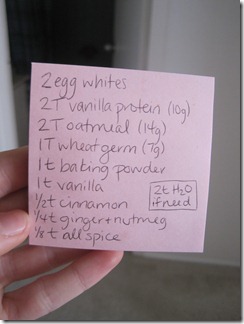 2 egg whites
2T vanilla protein (10g)
2T oatmeal (14g)
1T wheat germ (7g)
1t baking powder
1t vanilla
½t cinnamon
¼t ginger+nutmeg
⅛t allspice
2t H2O
if need